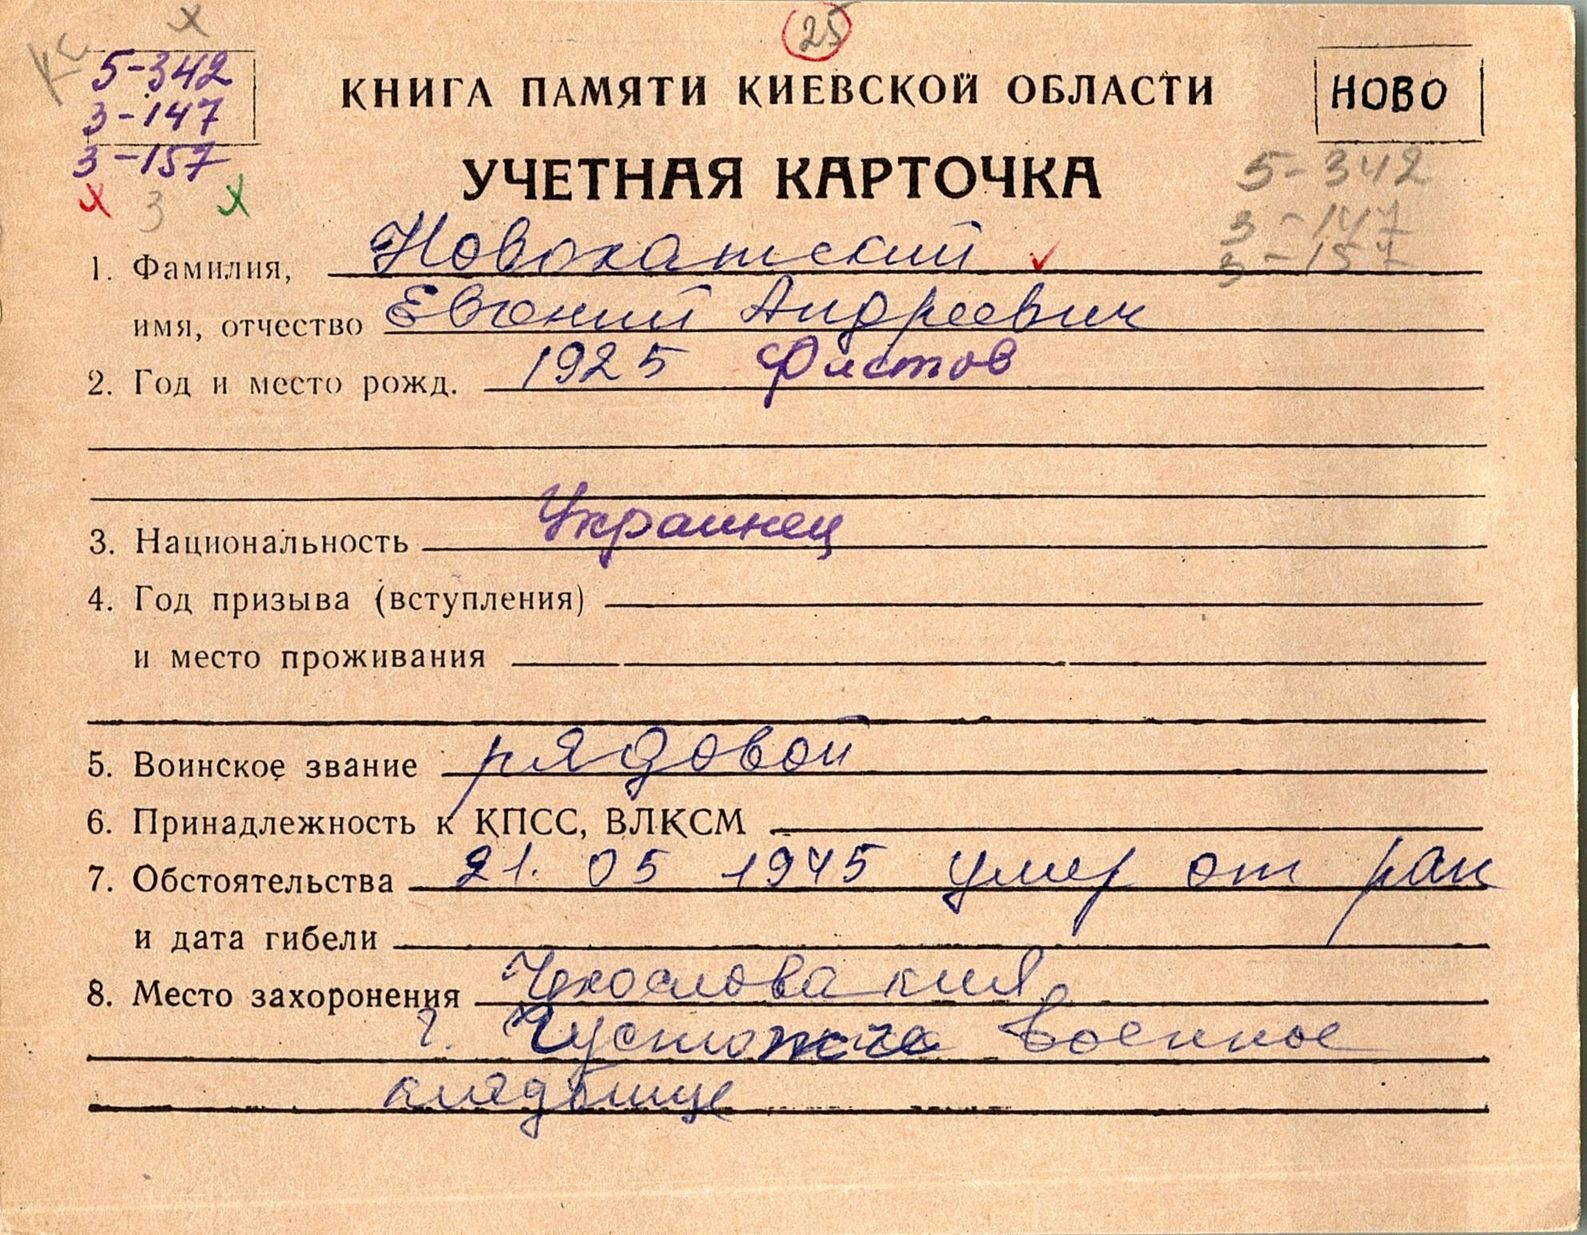 Кс х
25
5-342
3-147
3-157
х 3 х
КНИГА ПАМЯТИ КИЕВСКОЙ ОБЛАСТИ
НОВО
УЧЕТНАЯ КАРТОЧКА
5-342
3-147
3-157
1. Фамилия, Новохатский
имя, отчество Евгений Андреевич
2. Год и место рожд. 1925 Фастов
3. Национальность Украинец
4. Год призыва (вступления)
и место проживания
5. Воинское звание рядовой
6. Принадлежность к КПСС, ВЛКСМ
7. Обстоятельства 21.05 1945 умер от ран
и дата гибели
8. Место захоронения Чехословакия,
г. военное
кладбище